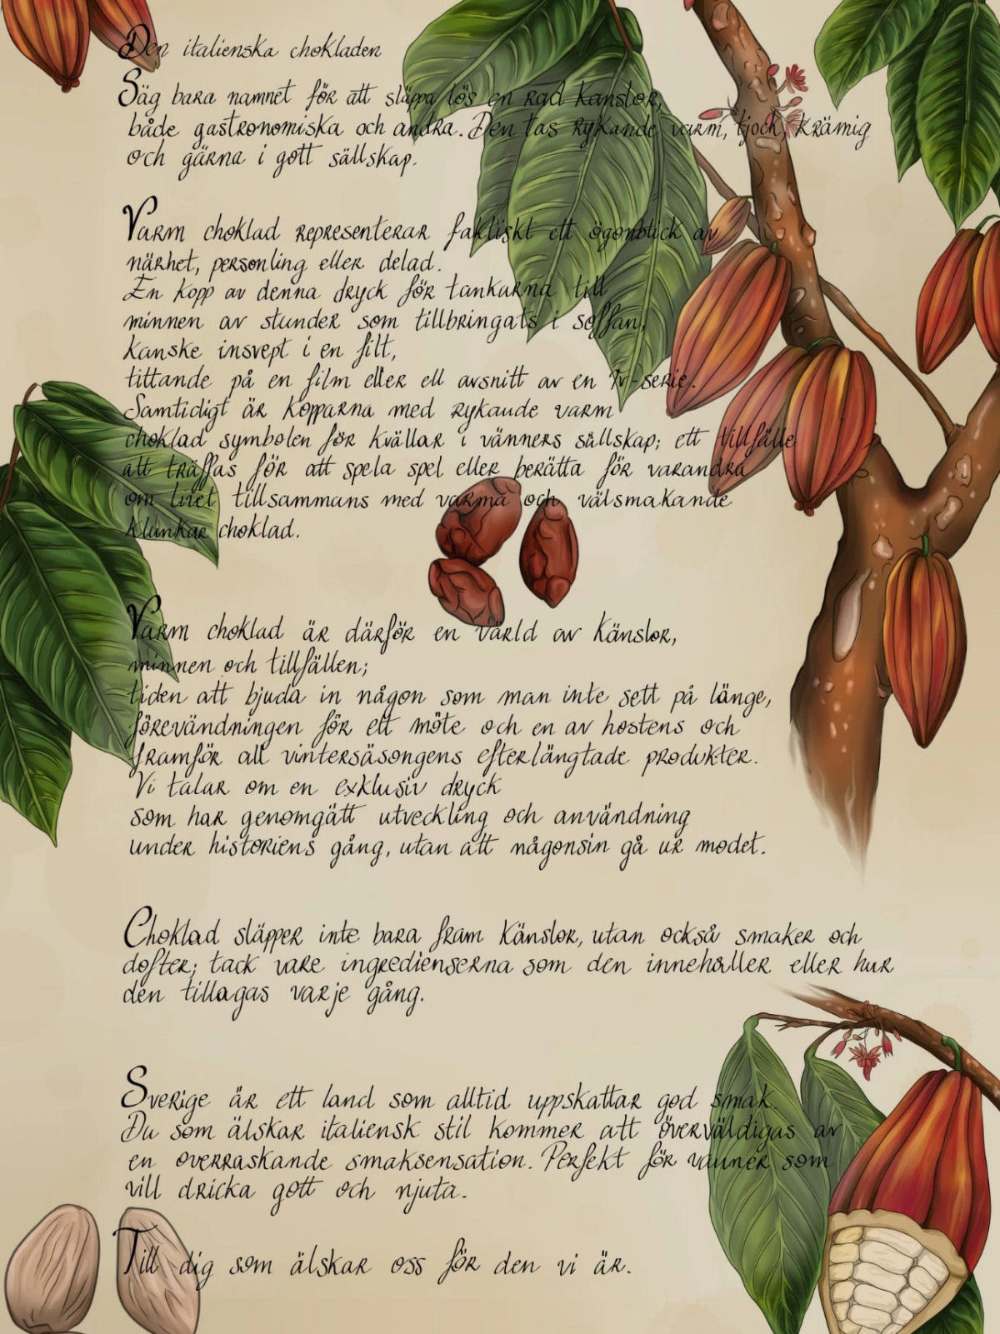 Den italienska chokladen
Säg bara namnet för att släppa lös en rad känslor,
både gastronomiska och andra. Den tas rykande varm, tjock, krämig
och gärna i gott sällskap.
Varm choklad representerar faktiskt ett ögonblick av
närhet, personling eller delad.
En kopp av denna dryck för tankarna till
minnen av stunder som tillbringats i soffan,
kanske insvept i en filt,
tittande på en film eller ell avsnitt av en Tv-serie.
Samtidigt är kopparna med rykande varm
choklad symbolen för kvällar i vänners sällskap; ett tillfälle
att träffas för att spela spel eller berätta för varandra
om livet tillsammans med varma och välsmakande
klunkar choklad.
Varm choklad är därför en värld av känslor,
minnen och tillfällen;
tiden att bjuda in någon som man inte sett på länge,
förevändningen för ett möte och en av hostens och
framför all vintersäsongens efterlängtade produkter.
Vi talar om en exklusiv dryck
som har genomgått utveckling och användning
under historiens gång, utan att någonsin gå ur modet.
Choklad släpper inte bara fram känslor, utan också smaker och
dofter; tack vare ingredienserna som den innehåller eller hur
den tillagas varje gång.
Sverige är ett land som alltid uppskattar god smak.
Du som älskar italiensk stil kommer att överväldigas av
en overraskande smaksensation. Perfekt för vänner som
vill dricka gott och njuta.
Till dig som älskar oss för den vi är.